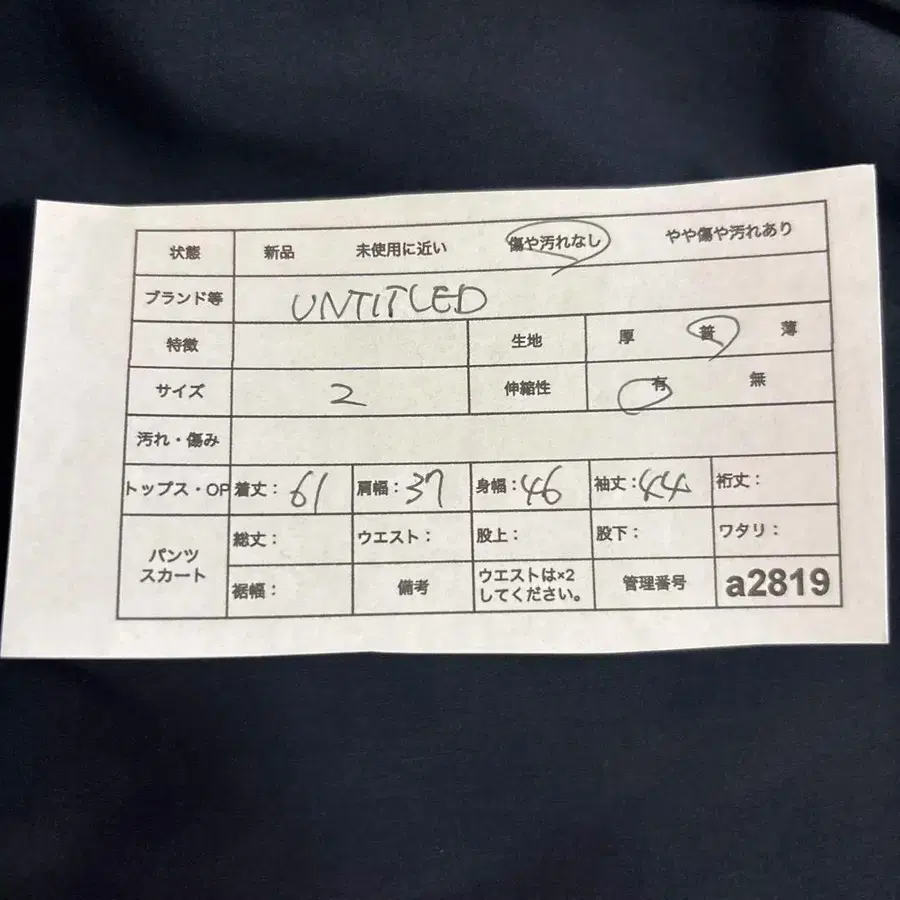 状態 新品 未使用に近い 傷や汚れなし やや傷や汚れあり
ブランド等 UNTITLED
特徴 生地 厚 普 薄
サイズ 2 伸縮性 有 無
汚れ・傷み
トップス・OP 着丈：61 肩幅：37 身幅：46 袖丈：44 裄丈：
パンツ
スカート
総丈： ウエスト： 股上： 股下： ワタリ：
裾幅： 備考 ウエストは×2
してください。 管理番号 a2819